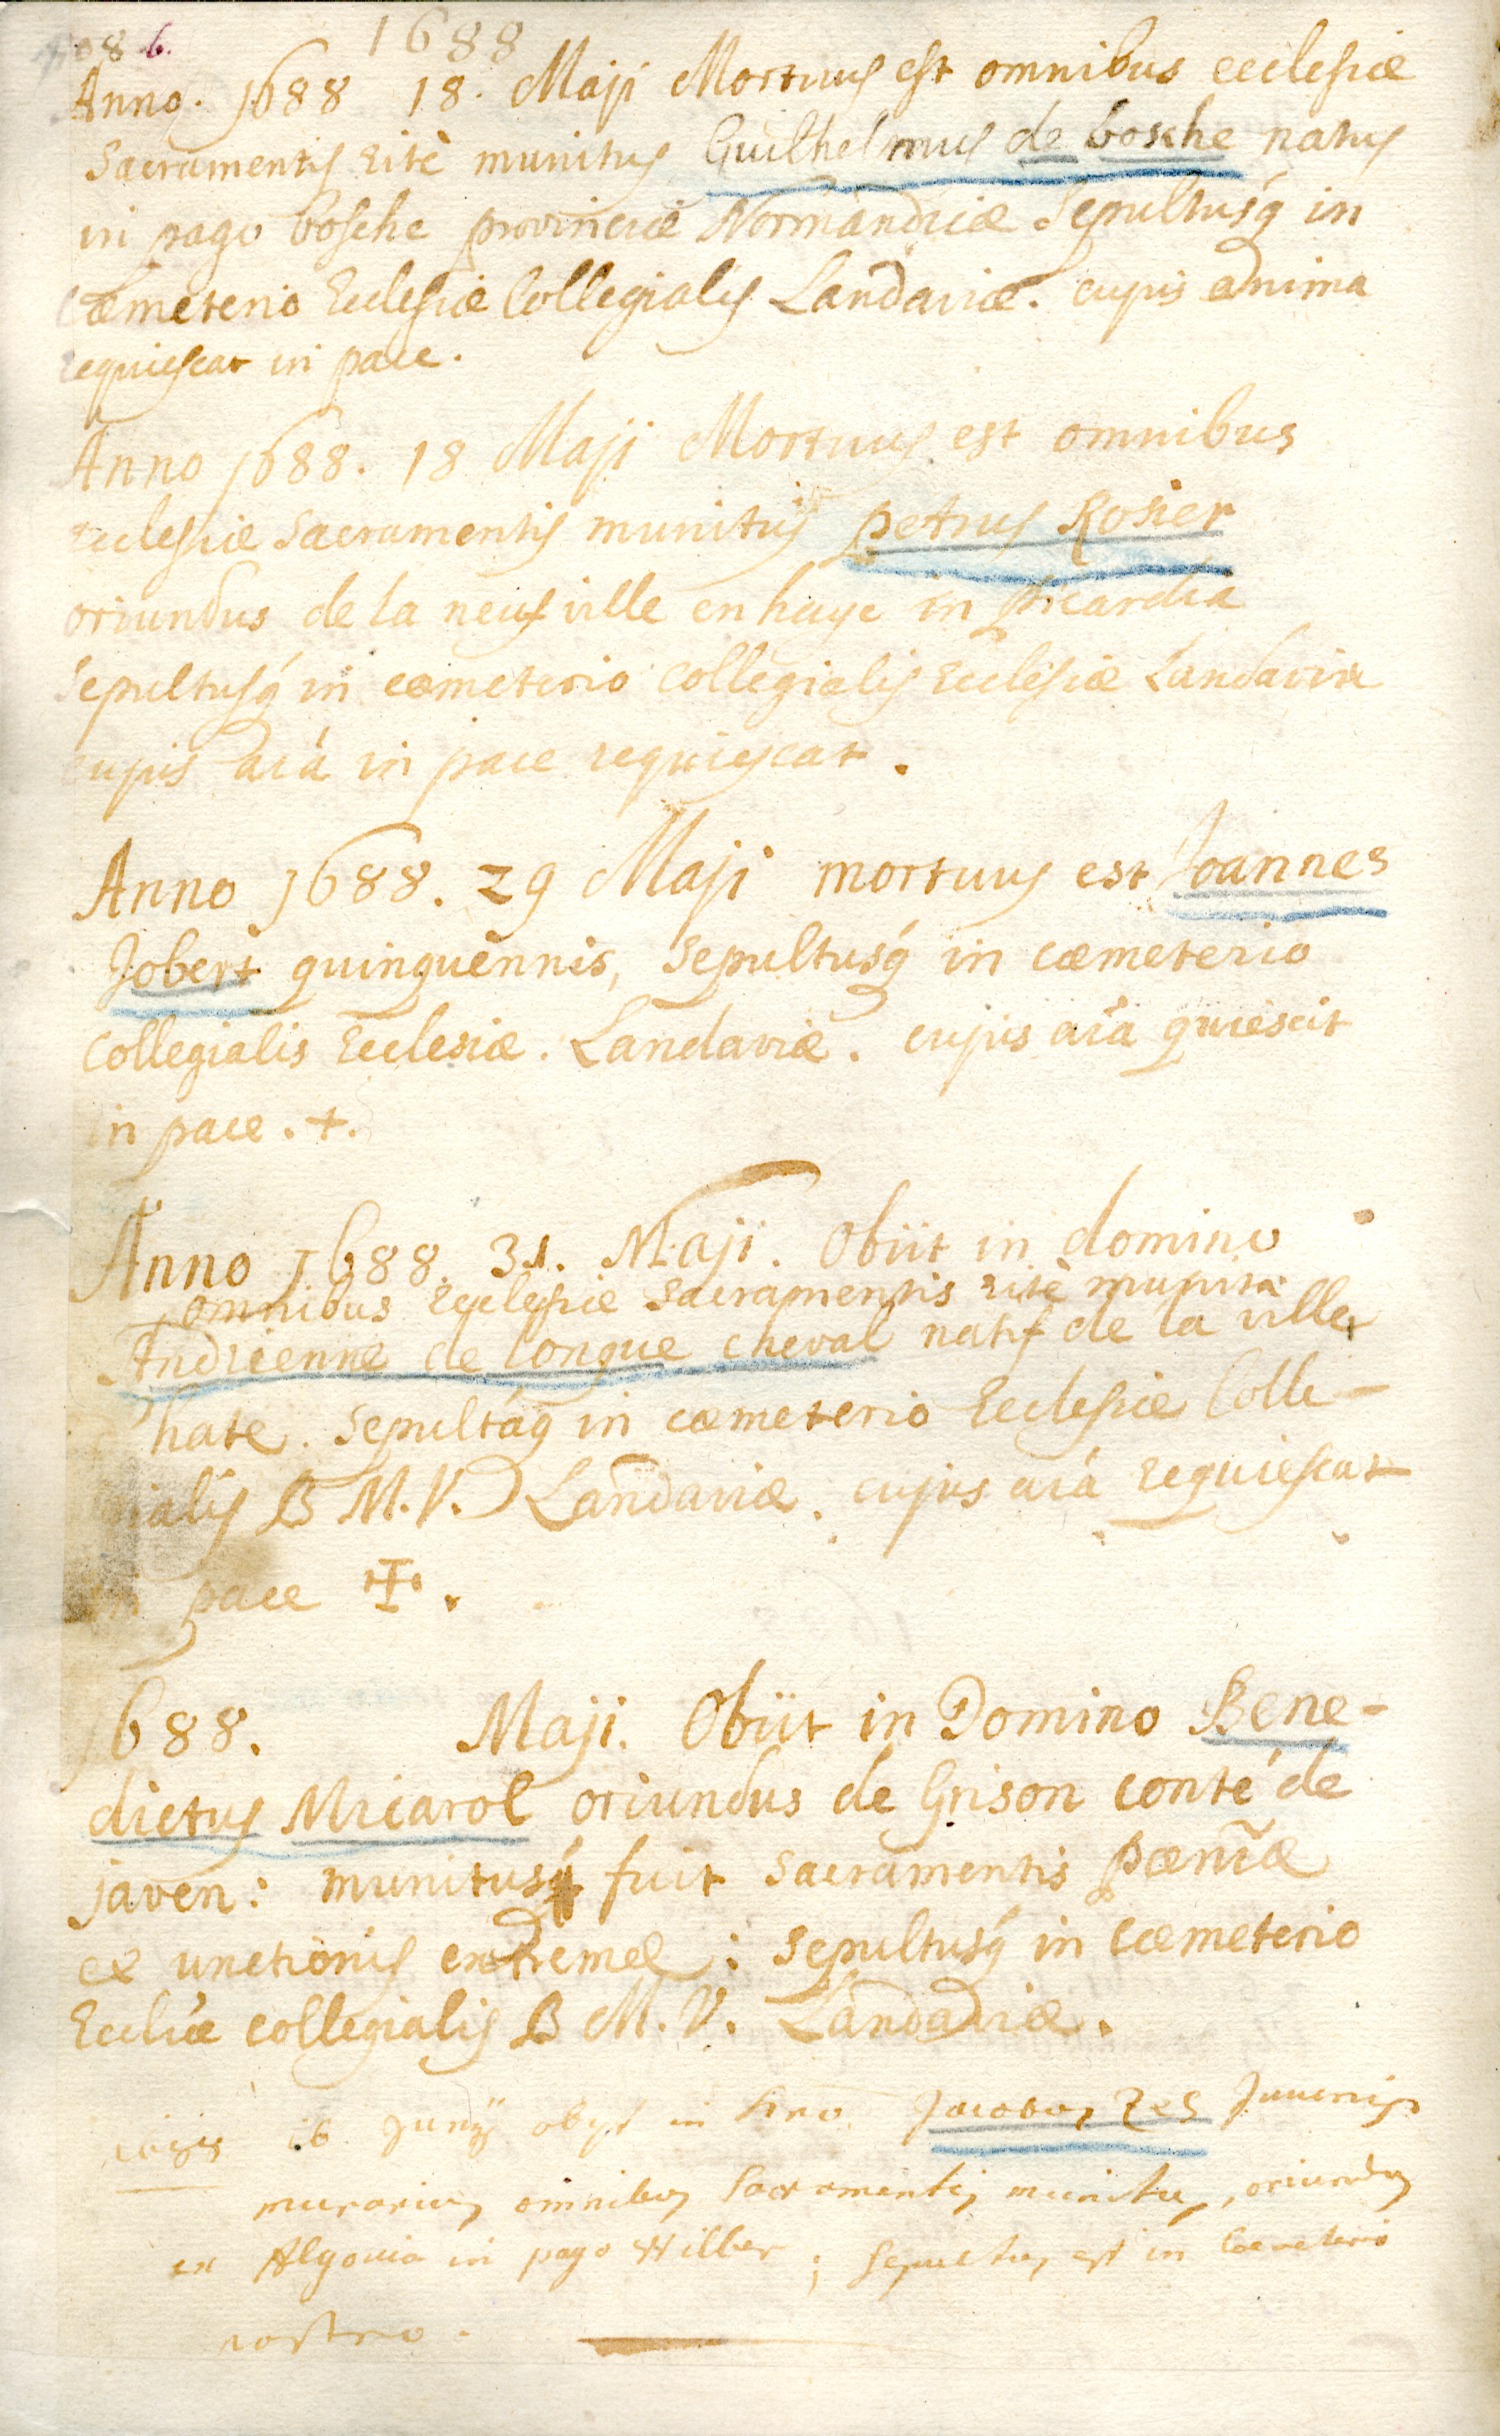 086.
1688
Anno. 1688 18. Maji Mortuus est omnibus ecclesiæ
Sacramentis ritè munitus Guilhelmus de bosche natus
in pago bosche provinciæ Normandiæ Sepultusq́ in
Cæmeterio Ecclesiæ Collegialis Landaviæ. cujus anima
requiescat in pace.
Anno 1688. 18 Maji Mortuus est omnibus
Ecclesiæ Sacramentis munitus petrus Rosier
oriundus de la neufville en haye in picardia
Sepultusq́ in cæmeterio Collegialis Ecclesiæ Landaviæ
cujus aiā in pace requiescat.
Anno 1688. 29 Maji mortuus est Joannes
Jobert quinquennis, Sepultusq́ in cæmeterio
Collegialis Ecclesiæ. Landaviæ. cujus aiā quiescit
in pace. +.
Anno 1688. 31. Maji. Obiit in domino
omnibus Ecclesiæ Sacramentis ritè munita
Andrienne de longue cheval natif de la ville
hate. Sepultáq in cæmeterio Ecclesiæ Colle-
gialis B M. V. Landaviæ. cujus aiā requiescat
in pace ✠.
1688. Maji. Obiit in Domino Bene-
dictus Micarol oriundus de Grison conté de
javen: munitusq́ fuit Sacramentis pæniæ
et unctionis extremæ: Sepultusq́ in cæmeterio
Eccliæ collegialis B M. V. Landaviæ.
16 Junij obijt in Dno Jacobus Juvenis
murarius omnibus Sacramentis munitus, oriundus
ex Algovia in pago ; Sepultus est in Cœmeterio
nostro.